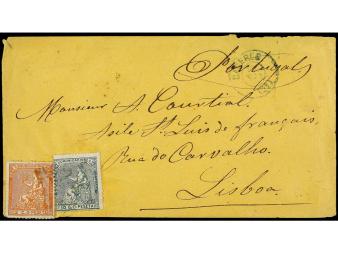 Portugal
Monsieur A. Courtial.
Asile St Luis de français,
Rua do Carvalho.
Lisboa.